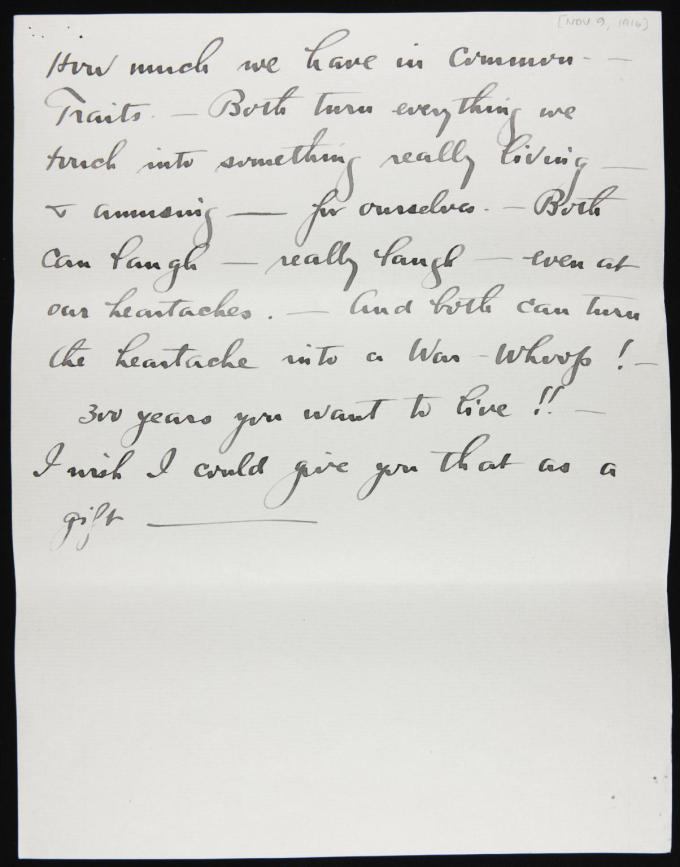 [NOV 9, 1916]
How much we have in common - —
Traits. — Both turn everything we
touch into something really living —
& amusing — for ourselves. — Both
can laugh — really laugh — even at
our heartaches. — And both can turn
the heartache into a War - Whoop! —
300 years you want to live!! —
I wish I could give you that as a
gift —